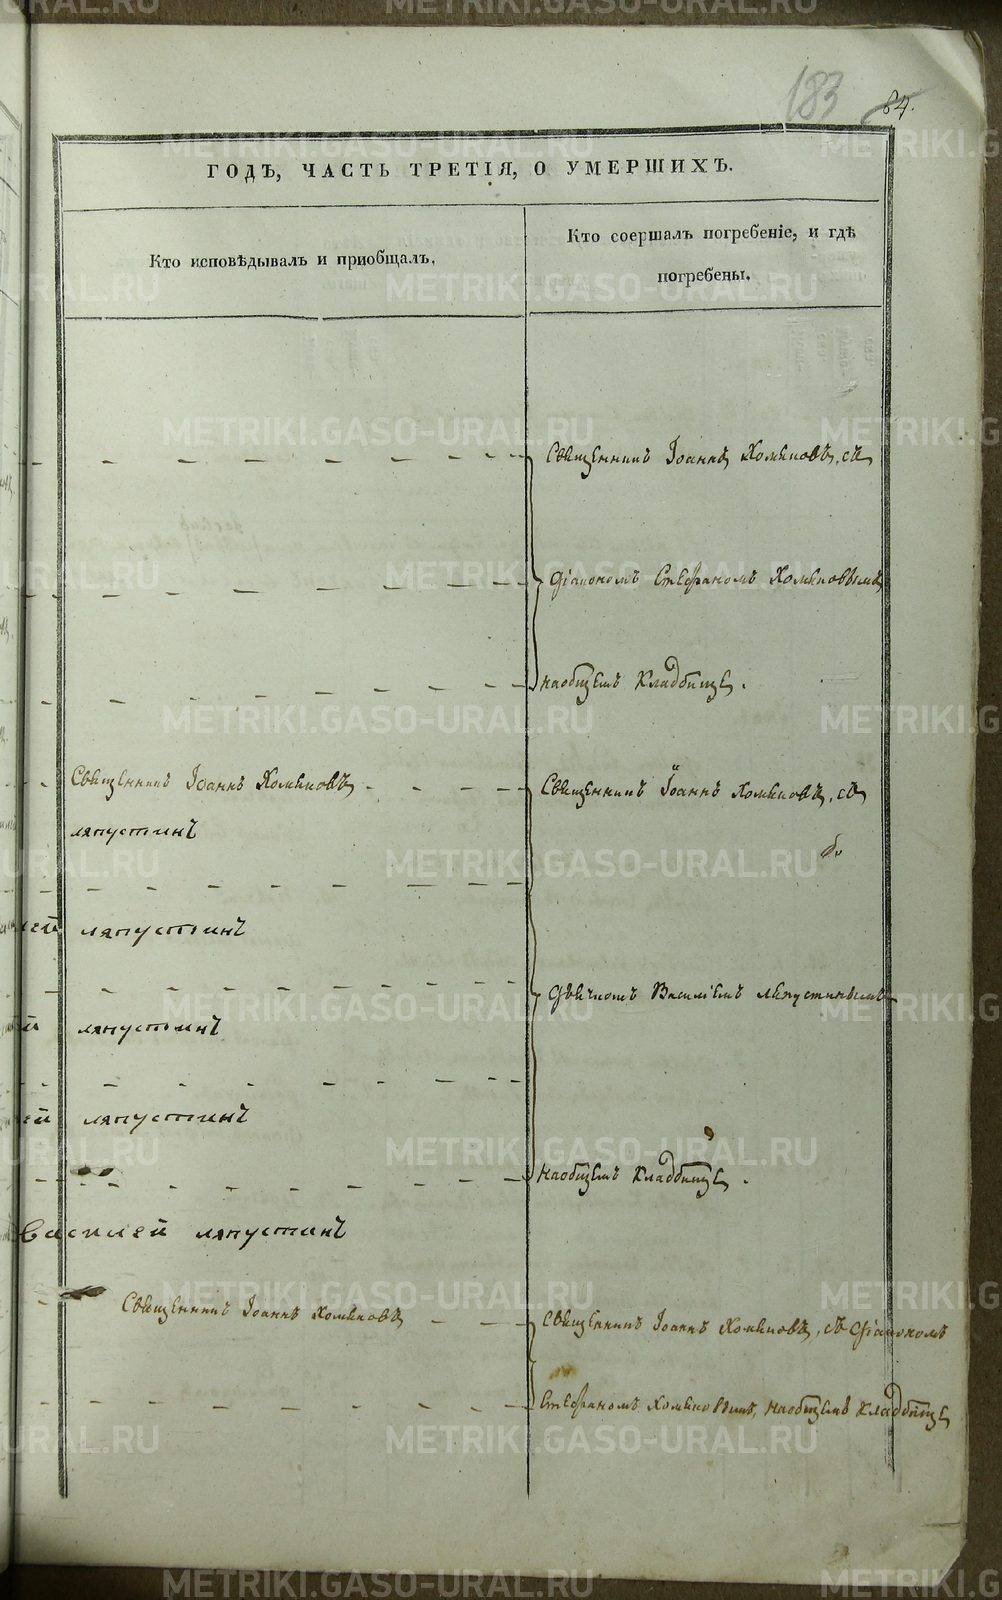 183
84.
ГОДЪ, ЧАСТЬ ТРЕТІЯ, О УМЕРШИХЪ.
Кто исповѣдывалъ и приобщалъ.
Кто соершалъ погребеніе, и гдѣ
погребены.
Священникъ Іоаннъ Хомяковъ, съ
діакономъ Стефаномъ Хомяковымъ
наобщемъ кладбище.
Священникъ Іоаннъ Хомяковъ
Священникъ Іоаннъ Хомяковъ, съ
ляпустинъ
лей ляпустинъ
дьячкомъ Василіемъ ляпустинымъ
й ляпустинъ
ей ляпустинъ
наобщемъ кладбище.
василей ляпустинъ
Священникъ Іоаннъ Хомяковъ
Священникъ Іоаннъ Хомяковъ, съ діакономъ
Стефаномъ Хомяковымъ, наобщемъ кладбище
METRIKI.GASO-URAL.RU